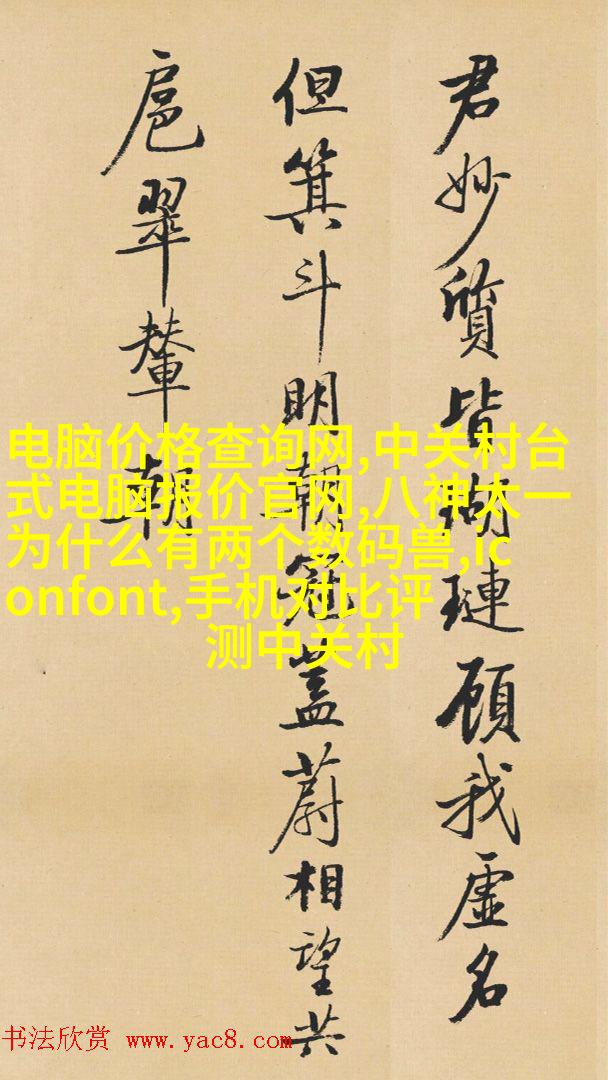 君妙质皆瑚琏顾我虚名
但箕斗明朝冠盖蔚相望共
扈翠辇朝
电脑价格查询网,中关村台
式电脑报价官网,八神太一
为什么有两个数码兽,ic
onfont,手机对比评
测中关村
书法欣赏 www.yac8.com